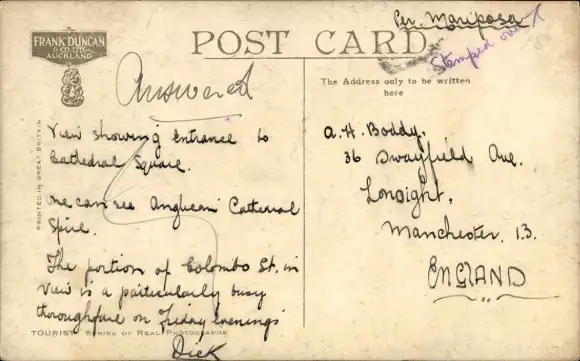 Per Mariposa
FRANK DUNCAN
& CO. LTD.
AUCKLAND
POST CARD
Stamped over
Answered
The Address only to be written
here
View showing entrance to
Cathedral Square.
One can see Anglican Cathedral
Spire.
The portion of Colombo St. in
view is a particularly busy
thoroughfare on Friday evenings
Dick
A. H. Boddy,
36 Swayfield Ave.
Longsight,
Manchester. 13.
ENGLAND
PRINTED IN GREAT BRITAIN
TOURIST SERIES OF REAL PHOTOGRAPHS